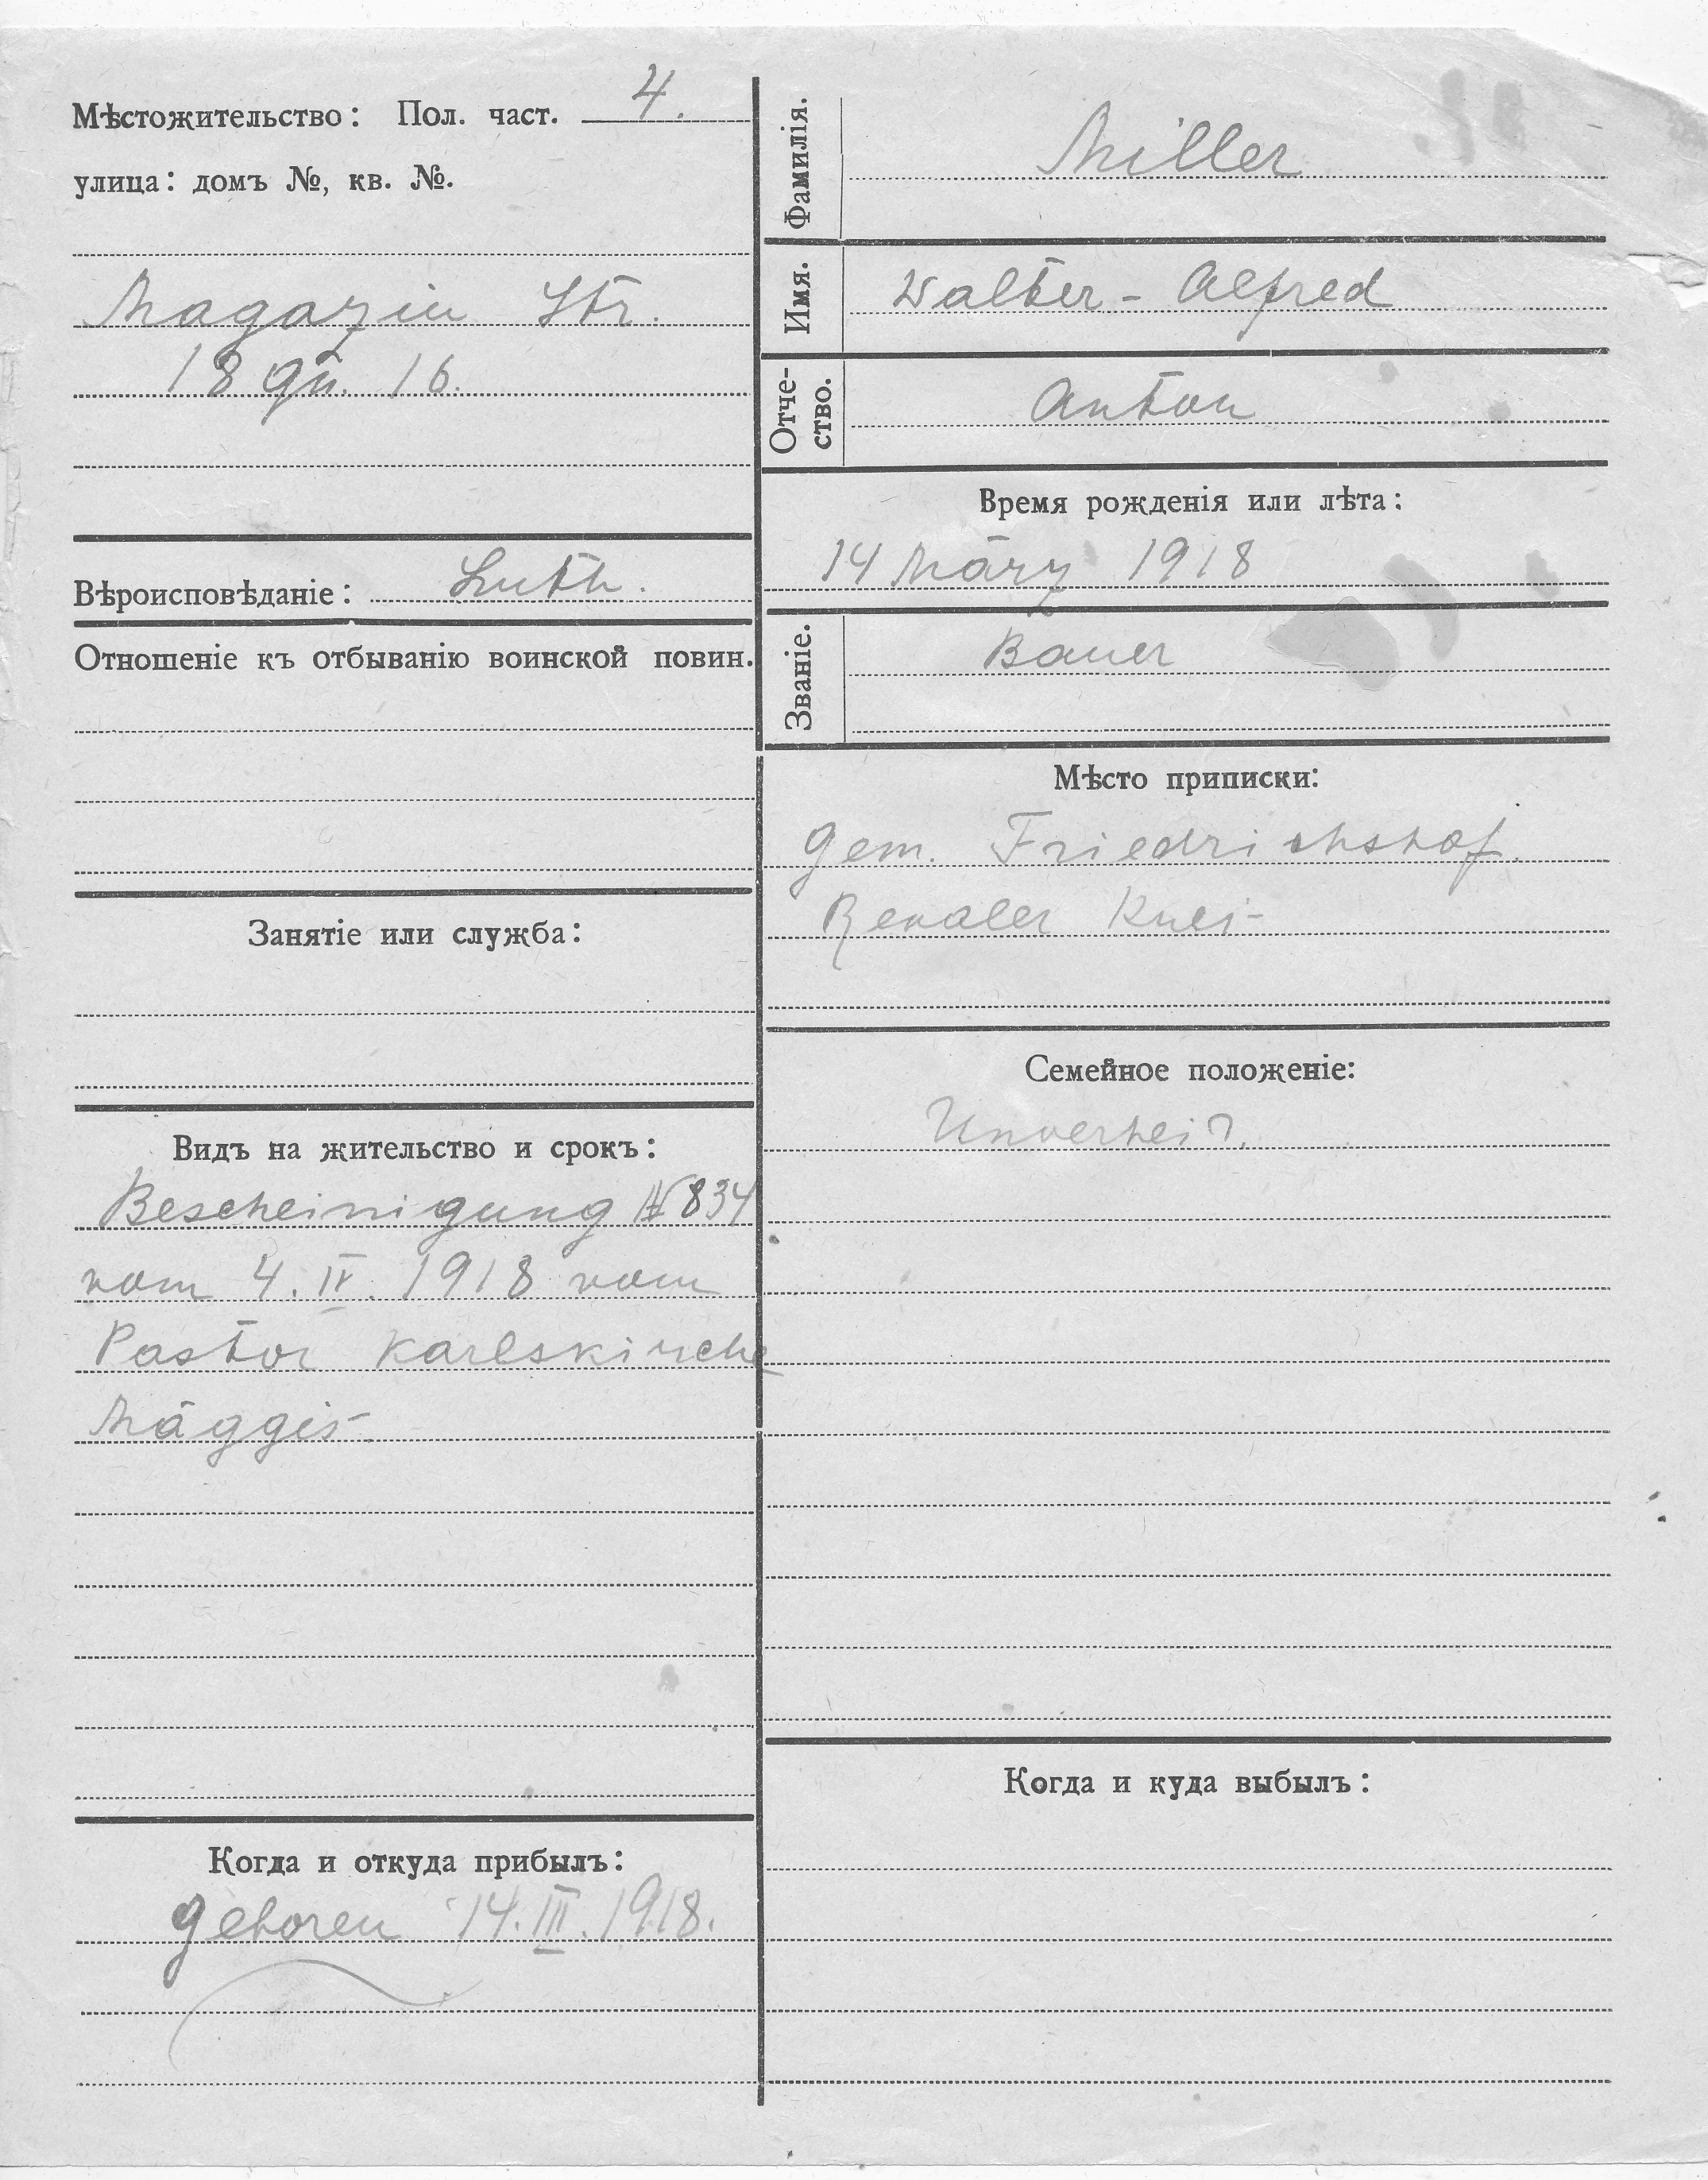 Мѣстожительство: Пол. част. 4.
улица: домъ №, кв. №.
Magazin Str.
18 qu. 16.
Вѣроисповѣданіе: Luth.
Отношеніе къ отбыванію воинской повин.
Занятіе или служба:
Видъ на жительство и срокъ:
Bescheinigung № 834
vom 4. IV. 1918 vom
Pastor Karlskirche
Mäggis
Когда и откуда прибылъ:
geboren 14. III. 1918.
Фамилія. Miller
Имя. Walter - Alfred
Отче-
ство. Anton
Время рожденія или лѣта:
14 März 1918
Званіе. Bauer
Мѣсто приписки:
Gem. Friedrichshof.
Revaler Kreis
Семейное положеніе:
Unverheir.
Когда и куда выбылъ: